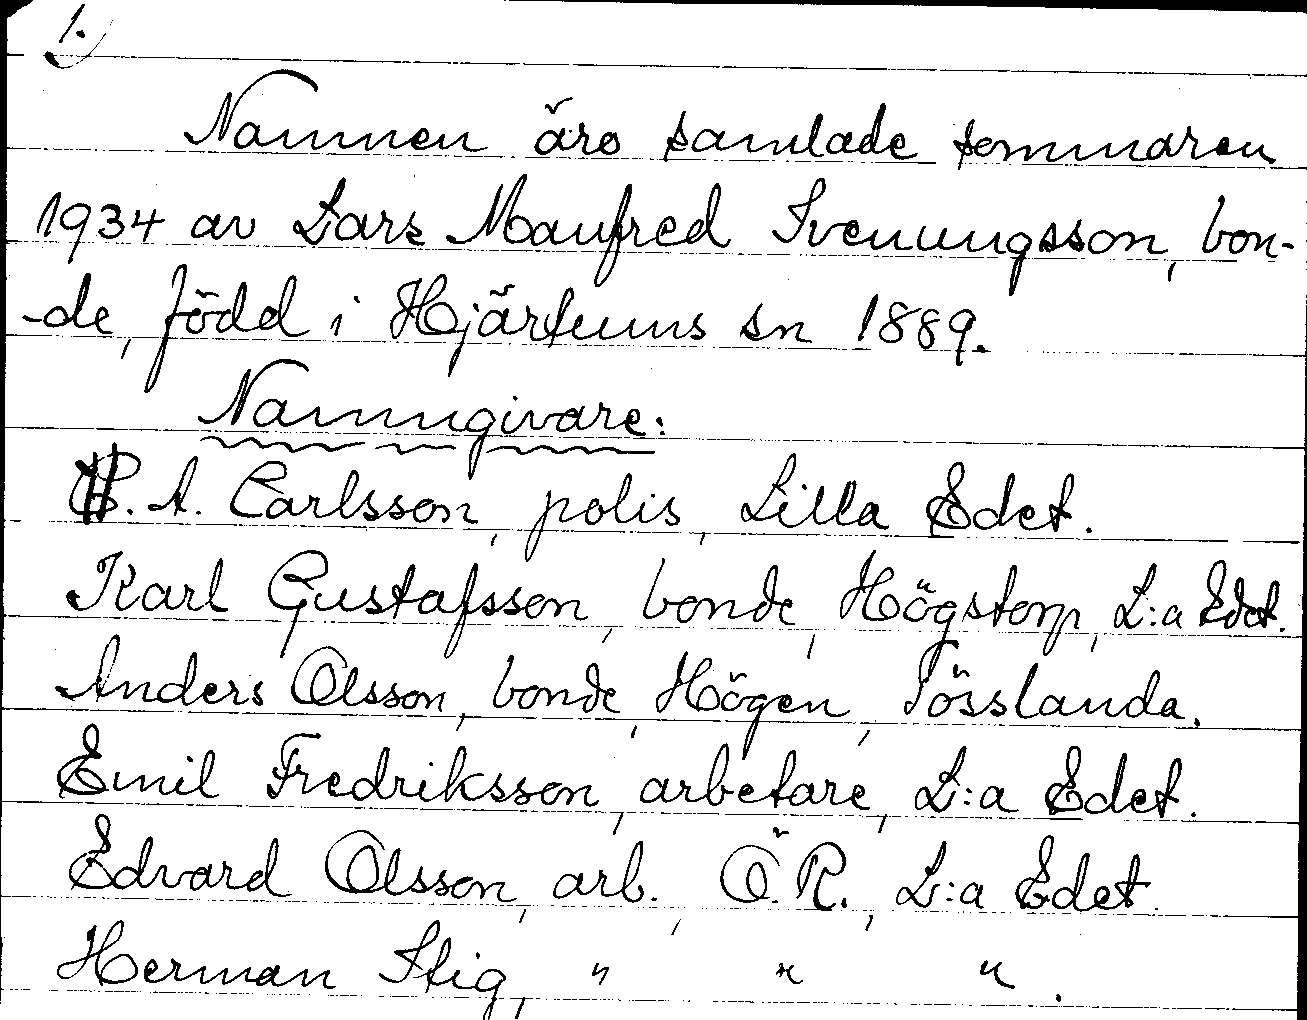 1.
Namnen äro samlade sommaren
1934 av Lars Manfred Svenungsson, bon-
-de, född i Hjärtums sn 1889.
Namngivare:
A. Carlsson, polis, Lilla Edet.
Karl Gustafsson, bonde, Högstorp, L:a Edet.
Anders Olsson, bonde, Högen, Tösslanda.
Emil Fredriksson, arbetare, L:a Edet.
Edvard Olsson, arb., Ö.R., L:a Edet.
Herman Stig, " " ".